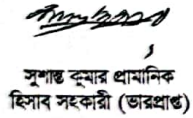 সুশান্ত কুমার প্রামানিক
হিসাব সহকারী (ভারপ্রাপ্ত)